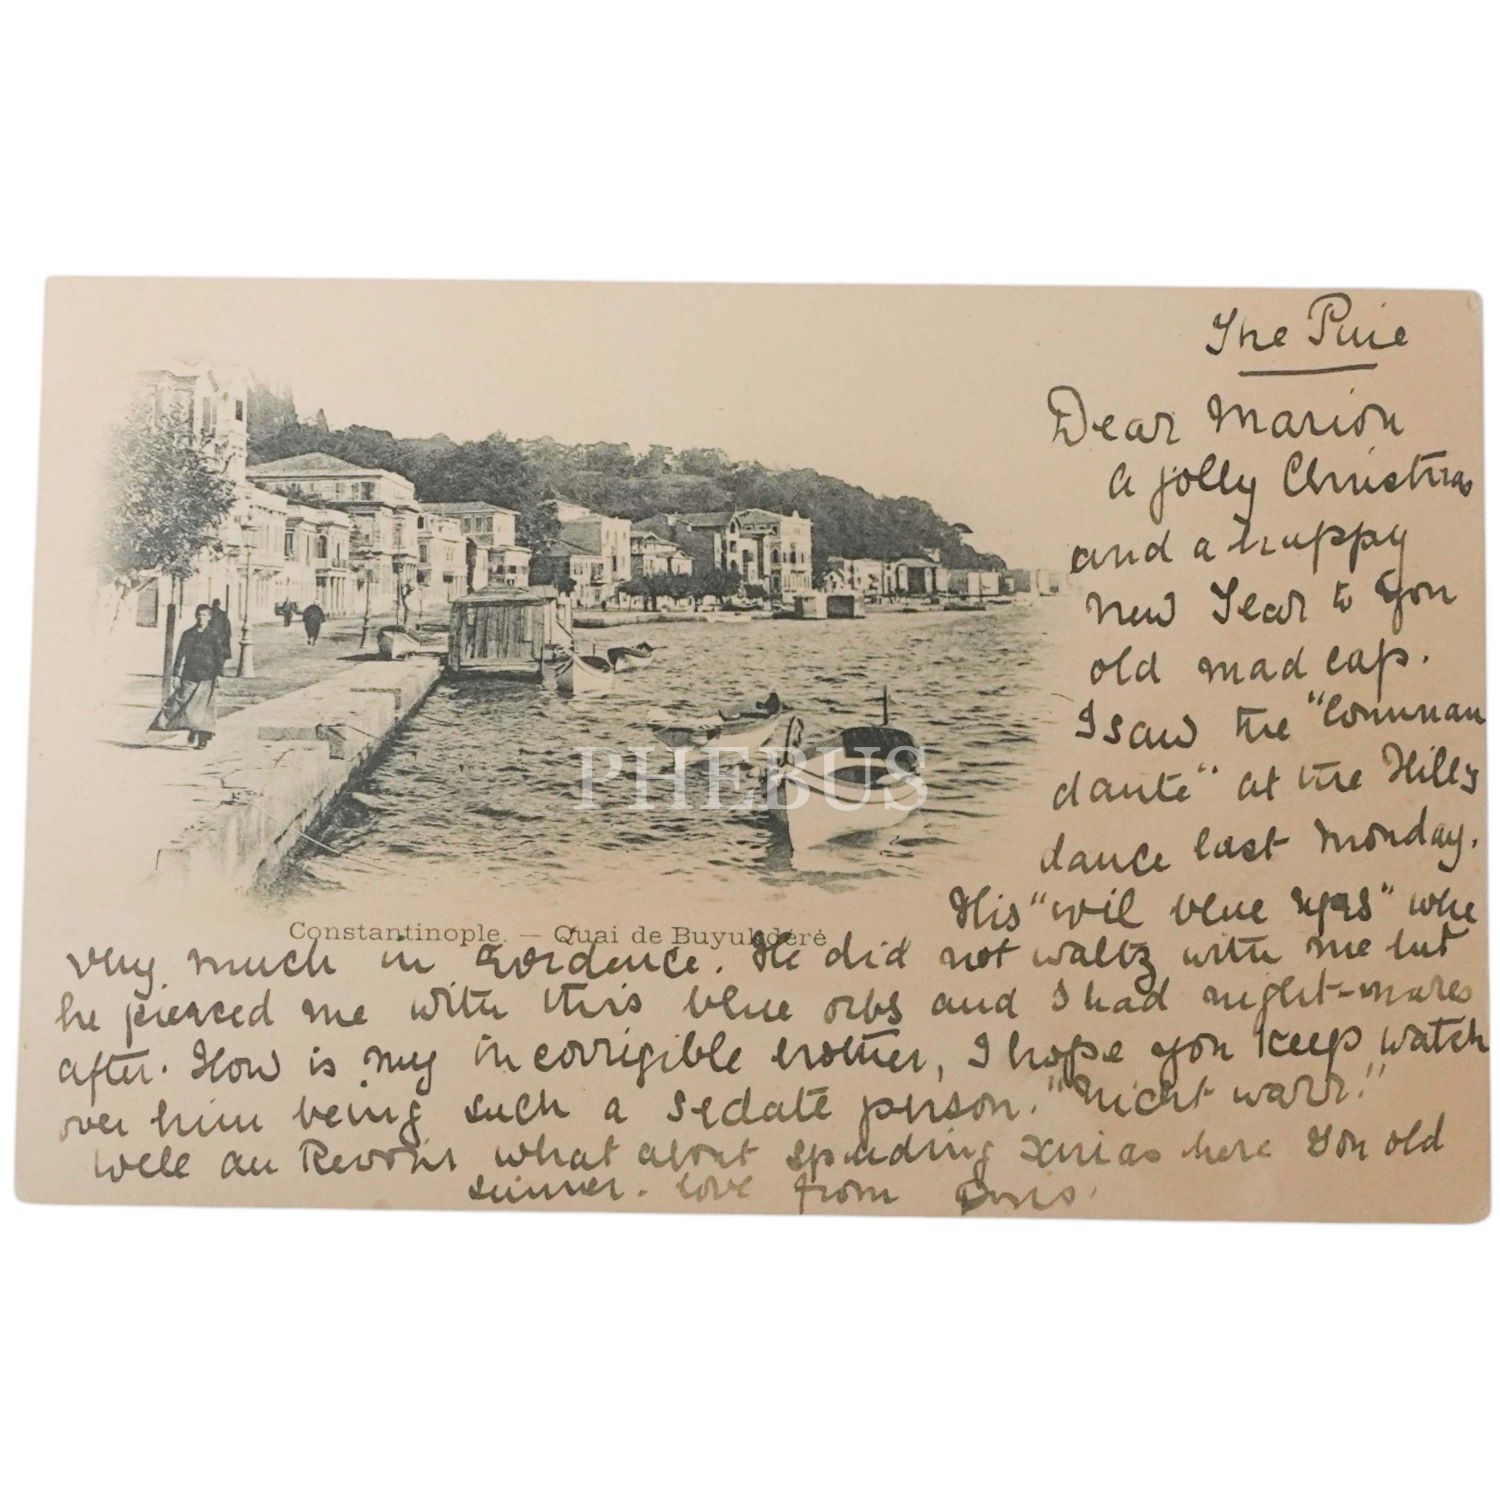 The Pine
Dear Marion
A jolly Christmas
and a happy
new Year to you
old mad cap.
I saw the "Comman
dante" at the Hills
dance last Monday.
His "wil blue eyes" whe
Constantinople. — Quai de Buyukderé
very much in Evidence. He did not waltz with me but
he pierced me with this blue orbs and I had night-mares
after. How is my incorrigible brother, I hope you keep watch
over him being such a sedate person. "Nicht warr."
Well au Revoir what about spending Xmas here you old
sinner. love from Doris.
PHEBUS